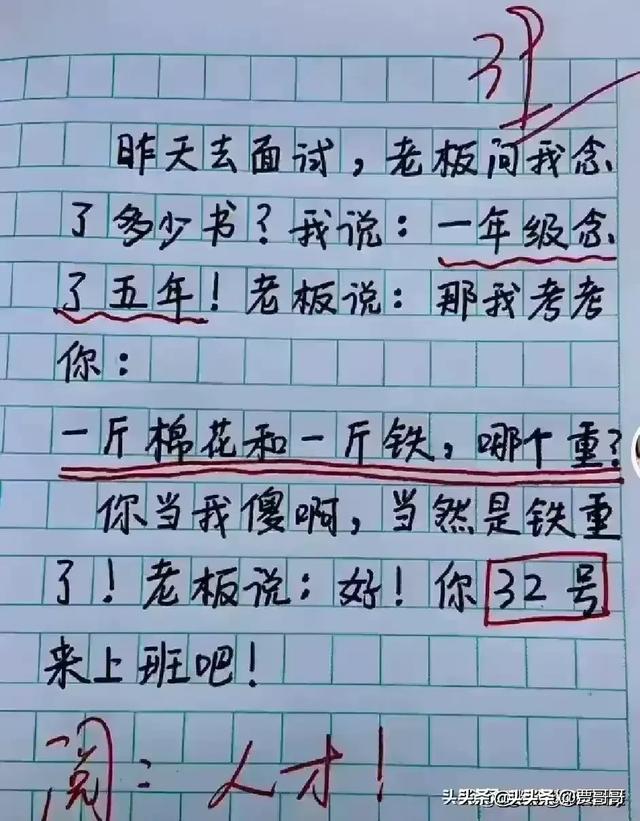 昨天去面试，老板问我念
了多少书？我说：一年级念
了五年！老板说：那我考考
你：
一斤棉花和一斤铁，哪个重？
你当我傻啊，当然是铁重
了！老板说：好！你32号
来上班吧！
阅：人才！
头条@头头条@贾哥哥